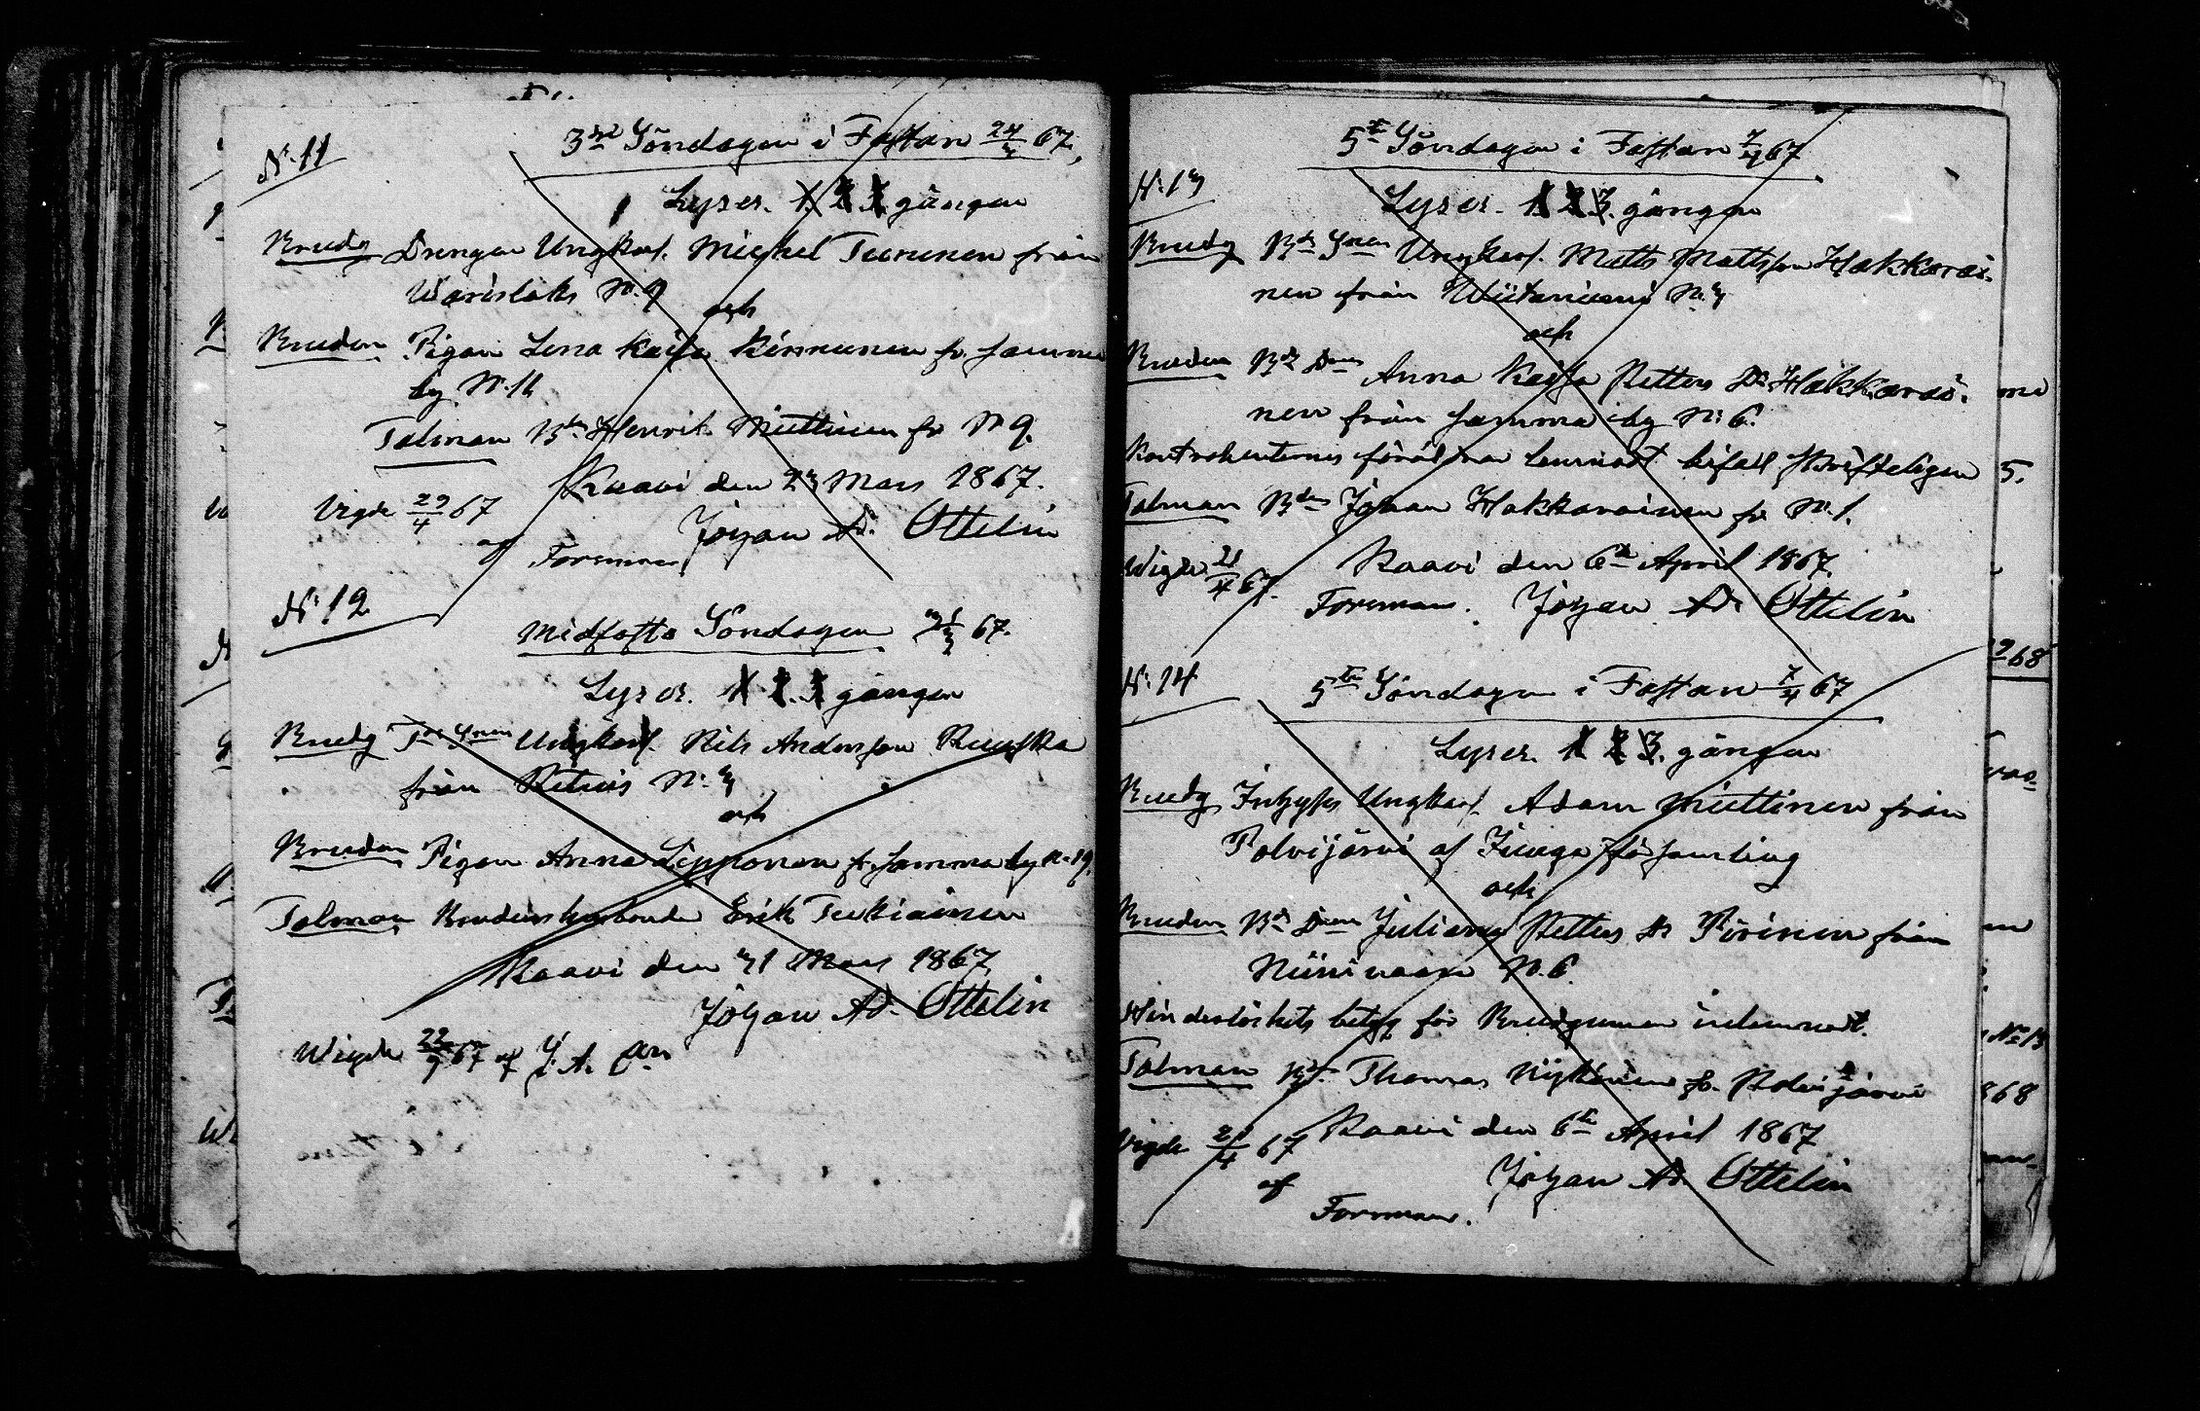 N:o 11
3dje Söndagen i Fastan 24/3 67.
Lyses. 1. 2. 3 gången
Brudg Drengen Ungkarl. Michel Turunen från
Warislaks N:o 9
och
Bruden Pigan Lena Kaisa Kinnunen fr. samma
by N:o 11
Talman Bdn Henrik Miettinen fr N 9.
Kaavi den 23 Mars 1867.
Vigde 29/4 67
Johan Ad. Ottelin
af Forsman
N:o 12
Midfasto Söndagen 31/3 67.
Lyses. 1. 2. 3 gången
Brudg Ungkarl. Nils Andersson Ruuska
från N:o 3
och
Bruden Pigan Anna Lipponen fr. samma by N:o 19.
Talman Brudens husbonde Erik Tukiainen
Kaavi den 31 Mars 1867
Johan Ad. Ottelin
Wigde 22/9 67 af J. A. On
N:o 13
5te Söndagen i Fastan 7/4 67
Lyses. 1 2 3. gången
Brudg Bd Snen Ungkarl. Matts Mattsson Hakkarai-
nen från N:o 3
och
Bruden Bd Dn Anna Kaisa Petters Dr Hakkarai-
nen från samma by N:o 6.
Kontrahenternes föräldrar lemnadt bifall skrifteligen
Talman Bdn Johan Hakkarainen fr N:o 1.
Kaavi den 6te April 1867.
Wigde 21/4 67.
Forsman. Johan Ad Ottelin
N:o 14
5te Söndagen i Fastan 7/4 67
Lyses. 1 2 3. gången
Brudg Inhyses Ungkarl. Adam Miettinen från
Polvijärvi af Juuga församling
och
Bruden Bd Dn Juliana Petters Dr Pörinen från
Niinivaara N:o 6.
Hinderlöshets betyg för Brudgummen inlemnadt.
Talman Bd. Thomas Nykänen fr. Polvijärvi
Kaavi den 6te April 1867
Vigde 21/4 67
Johan Ad Ottelin
af
Forsman.